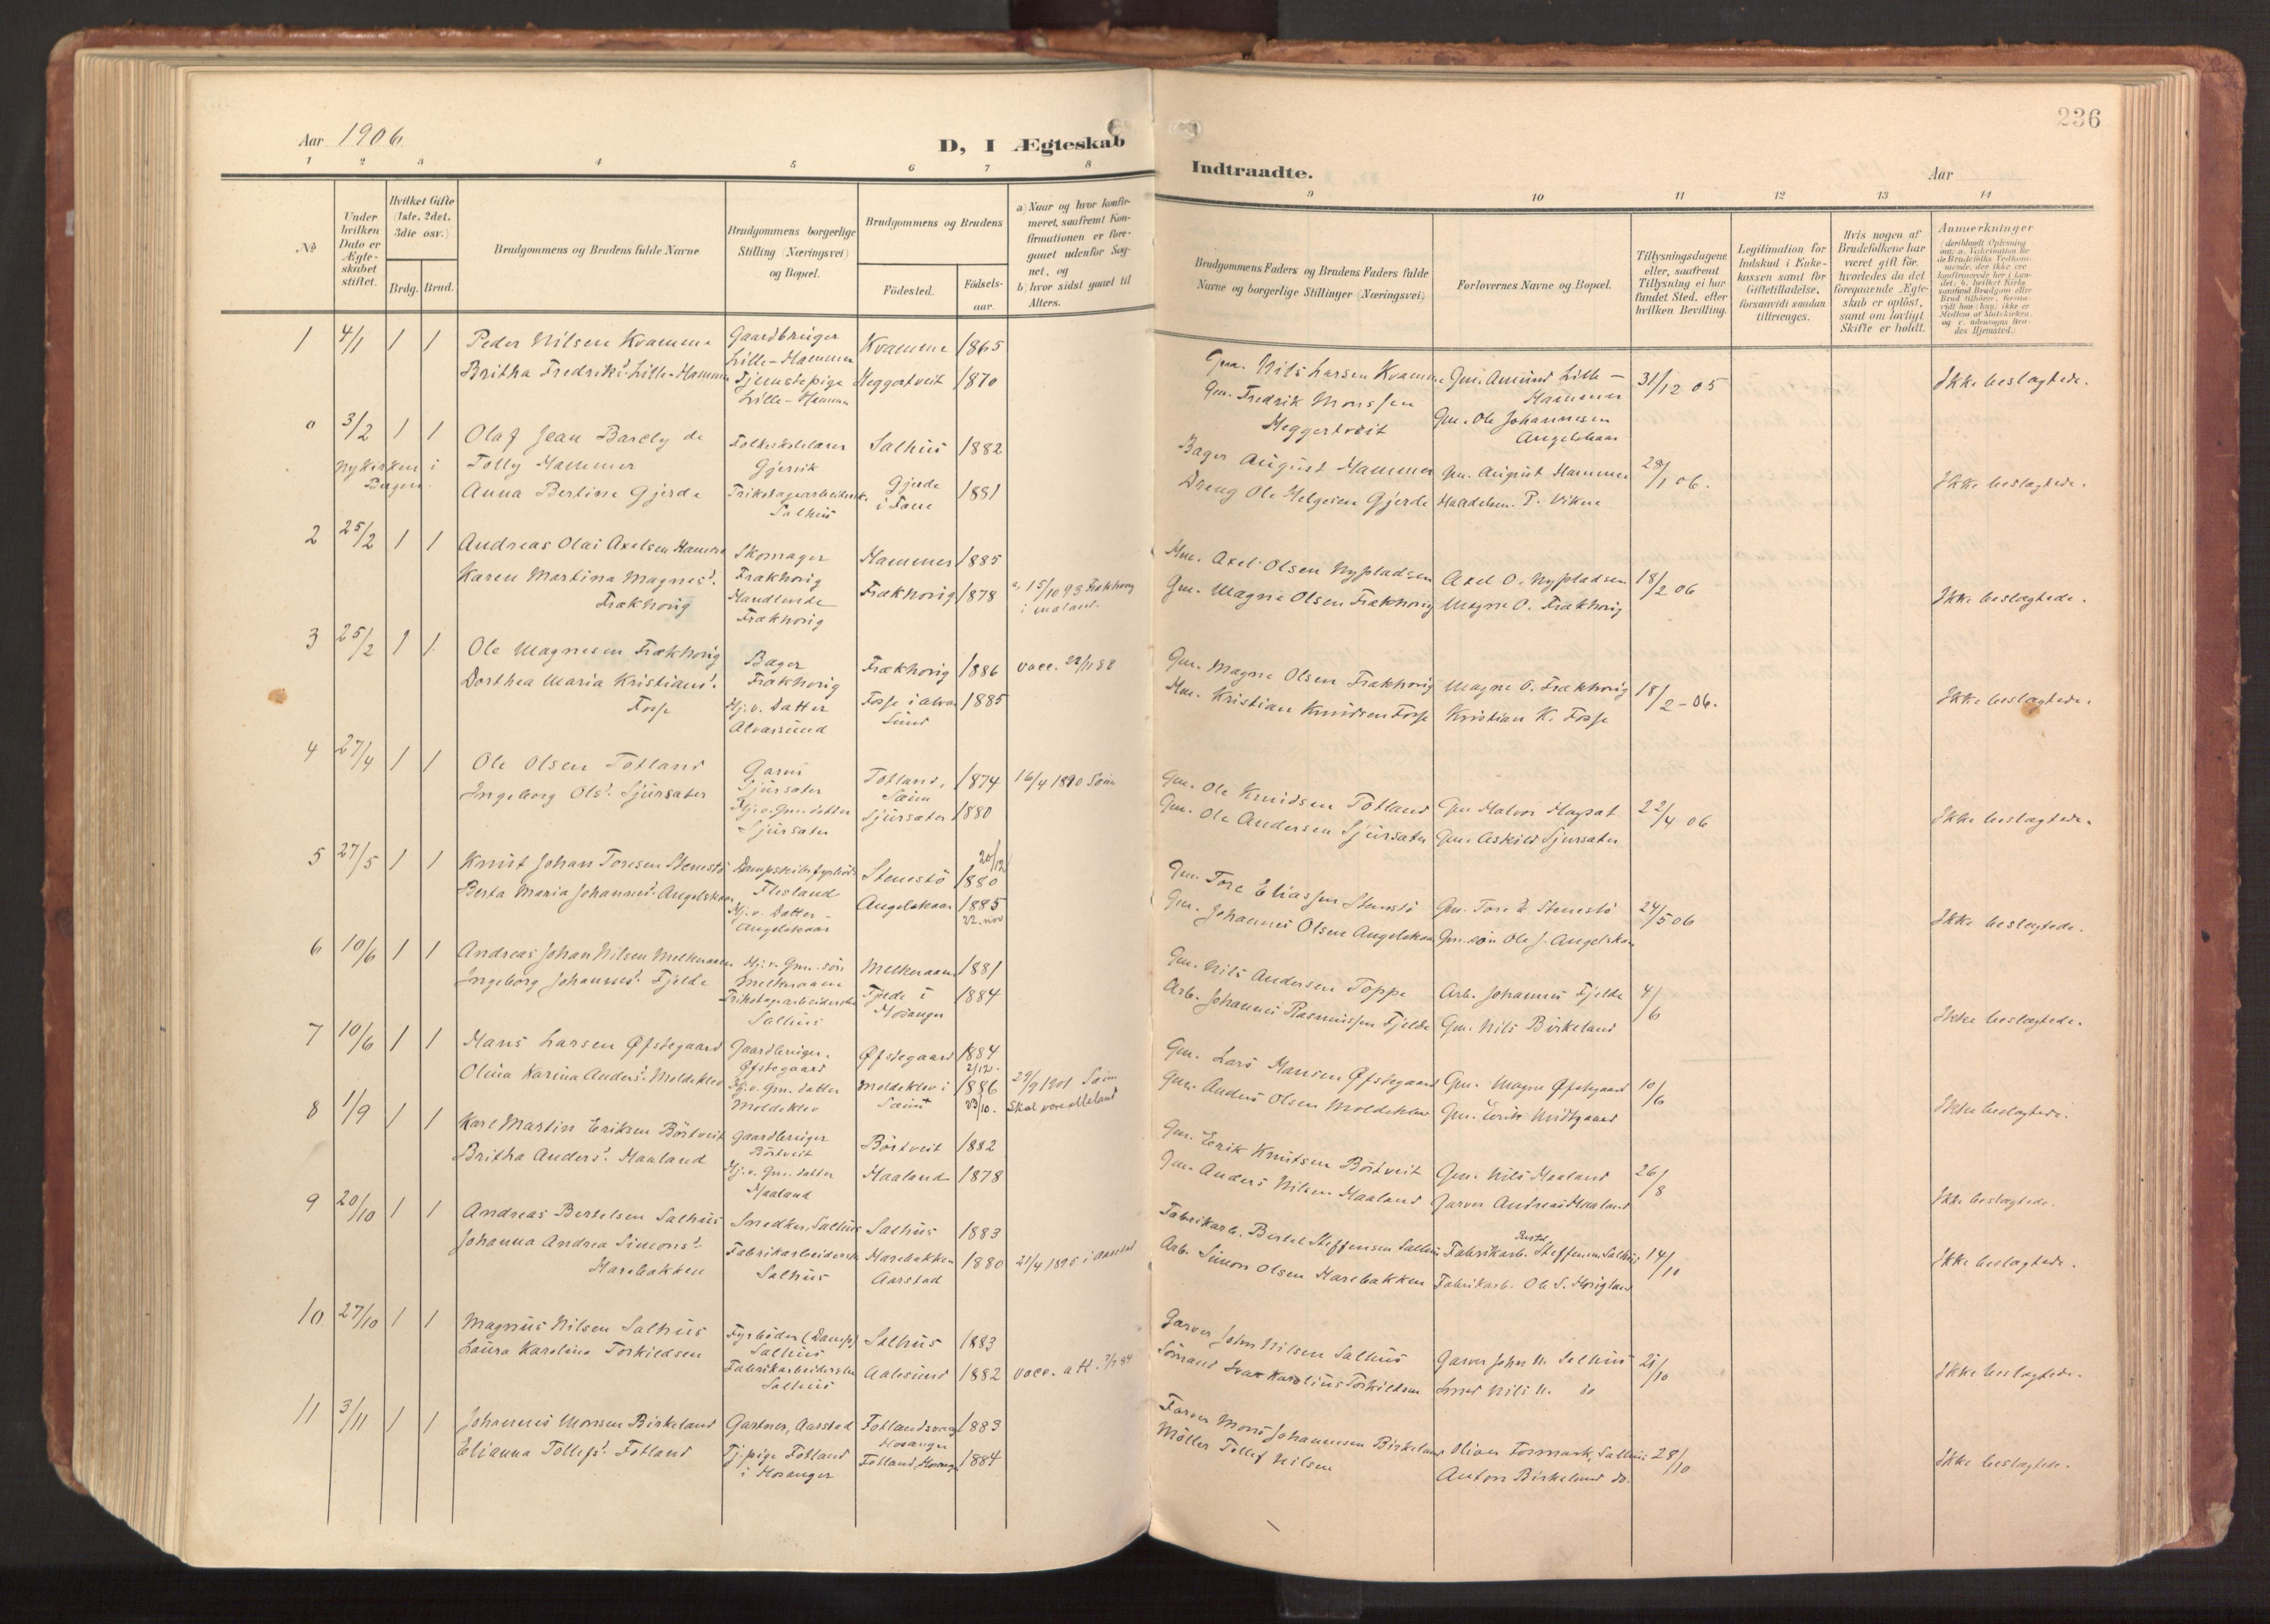 236
Aar 1906
D, I Ægteskab
Indtraadte.
Aar
1 2 3 4 5 6 7 8
9 10 11 12 13 14
No
Under hvilken Dato er Ægteskabet stiftet.
Hvilket Gifte (1ste, 2det, 3die osv.)
Brdg. Brud.
Brudgommens og Brudens fulde Navne
Brudgommens borgerlige Stilling (Næringsvei) og Bopæl.
Brudgommens og Brudens
Fødested.
Fødselsaar.
a) Naar og hvor konfirmeret, saafremt Konfirmationen er foregaaet udenfor Sognet, og
b) hvor sidst gaaet til Alters.
Brudgommens Faders og Brudens Faders fulde Navne og borgerlige Stillinger (Næringsvei)
Forlovernes Navne og Bopæl.
Tillysningsdagene eller, saafremt Tillysning ei har fundet Sted, efter hvilken Bevilling.
Legitimation for Indskud i Enkekassen samt for Giftetilladelse, forsaavidt saadan tiltrænges.
Hvis nogen af Brudefolkene har været gift før, hvorledes da det foregaaende Ægteskab er opløst, samt om lovligt Skifte er holdt.
Anmerkninger
1 4/1 1 1 Peder Nilsen Kvamme
Gaardbruger
Lille-Hammer
Kvamme 1865
Britha Fredriksd. Lille-Hammer
Tjenestepige
Lille-Hammer
Heggertveit 1870
Gm. Nils Larsen Kvamme
Gm. Fredrik Monssen
Heggertveit
Gm. Amund Lille-
Hammer
Gm. Ole Johannesen
Angelskaar
31/12 05
Ikke beslægtede.
0 3/2 1 1 Olaf Jean Barely de
Tolly Hammer
Nykirken i
Bergen
Gjervik
Salhus 1882
Anna Bertine Gjerde
Trikotagearbeidersk.
Salhus
Gjerde
i Fane
1881
Bager August Hammer
Dreng Ole Helgesen Gjerde
Gm. August Hammer
Handelsm. P. Vikne
28/1 06.
Ikke beslægtede.
2 25/2 1 1 Andreas Olai Axelsen Hammer
Skomager
Frækhorig
Hammer 1885
Karen Martina Magnesd.
Frækhorig
Handlende
Frækhorig
Frækhorig 1878
a, 15/10 93 Frækhorig
Hm. Axel Olsen Nypladsen
Gm. Magne Olsen Frækhorig
Axel O. Nypladsen
Magne O. Frækhorig
18/2 06
Ikke beslægtede.
3 25/2 1 1 Ole Magnesen Frækhorig
Bager
Frækhorig
Frækhorig 1886
vacc. 22/11 88
Dorthea Maria Kristiansd.
Fosse
Hj.v. Datter
Alversund
Fosse i Alver
sund
1885
Gm. Magne Olsen Frækhorig
Hm. Kristian Knudsen Fosse
Magne O. Frækhorig
Kristian K. Fosse
18/2-06.
Ikke beslægtede.
4 27/4 1 1 Ole Olsen Totland
Garver
Sjursæter
Totland,
Sæim
1874
16/4 1890 Sæim
Ingeborg Olsd. Sjursæter
Hj.v. Gm. datter
Sjursæter
Sjursæter 1880
Gm. Ole Knudsen Totland
Gm. Ole Andersen Sjursæter
Gm Halvor Hopsat
Gm. Askild Sjursæter
22/4 06
Ikke beslægtede.
5 27/5 1 1 Knut Johan Toresen Stenestø
Dampskibsfyrbøder
Flesland
Stenestø
20/12
1880
Berta Maria Johannesd. Angelskaar
Hj.v. Datter -
Angelskaar
Angelskaar
1885
22. nov
Gm. Tore Eliassen Stenestø
Gm. Johannes Olsen Angelskaar
Gm. Tore E. Stenestø
Gm.søn Ole J. Angelskaar
24/5 06
Ikke beslægtede.
6 10/6 1 1 Andreas Johan Nilsen Melkeraaen
Hj.v. Gm. søn
Melkeraaen
Melkeraaen 1881
Ingeborg Johannesd. Fjelde
Trikotagearbeiderske
Salhus
Fjelde i
Hosanger
1884
Gm. Nils Andersen Toppe
Arb. Johannes Rasmussen Fjelde
Arb. Johannes Fjelde
Gm. Nils Birkeland
4/6
Ikke beslægtede.
7 10/6 1 1 Hans Larsen Øfstegaard
Gaardbruger.
Øfstegaard
Øfstegaard
1884
2/12.
Olina Karina Andersd. Moldeklev
Hj.v. Gm. datter
Moldeklev
Moldeklev i
Sæim
1886
23/10.
29/9 1901 Sæim
Skal være Meland
Gm. Lars Hansen Øfstegaard
Gm. Anders Olsen Moldeklev
Gm. Magne Øfstegaard
Gm. Erik Midtgaard
10/6
Ikke beslægtede.
8 1/9 1 1 Karl Martin Eriksen Börtveit
Gaardbruger
Börtveit
Börtveit 1882
Britha Andersd. Haaland
Hj.v. Gm. datter
Haaland
Haaland 1878
Gm. Erik Knutsen Börtveit
Gm. Anders Nilsen Haaland
Gm. Nils Haaland
Garver Andreas Haaland
26/8
Ikke beslægtede.
9 20/10 1 1 Andreas Bertelsen Salhus
Snedker, Salhus
Salhus 1883
Johanna Andrea Simonsd.
Harebakken
Fabrikarbeiderske
Salhus
Harebakken
Aarstad
1880
21/4 1895 i Aarstad
Fabrikarb. Bertel Steffensen Salhus
Arb. Simon Olsen Harebakken
Fabrikarb. Bertel Steffensen Salhus
Fabrikarb. Ole S. Horigland
14/10
Ikke beslægtede.
10 27/10 1 1 Magnus Nilsen Salhus
Fyrbøder (Damp)
Salhus
Salhus 1883
Laura Karoline Torkildsen
Fabrikarbeiderske
Salhus
Aalesund 1882
vacc. att.
Garver John Nilsen Salhus
Sömand Ivar Karolius Torkildsen
Garver John N. Salhus
Smed Nils N. do
21/10
Ikke beslægtede.
11 3/11 1 1 Johannes Monsen Birkeland
Gartner, Aarstad
Fotlandsvaag
Hosanger
1883
Elianna Tollefsd. Fotland
Tj. pige Fotland
i Hosanger
Fotland, Hosanger
1884
Farver Mons Johannesen Birkeland
Møller Tollef Nilsen
Oliver Tormark, Salhus
Anton Birkeland do.
28/10
Ikke beslægtede.